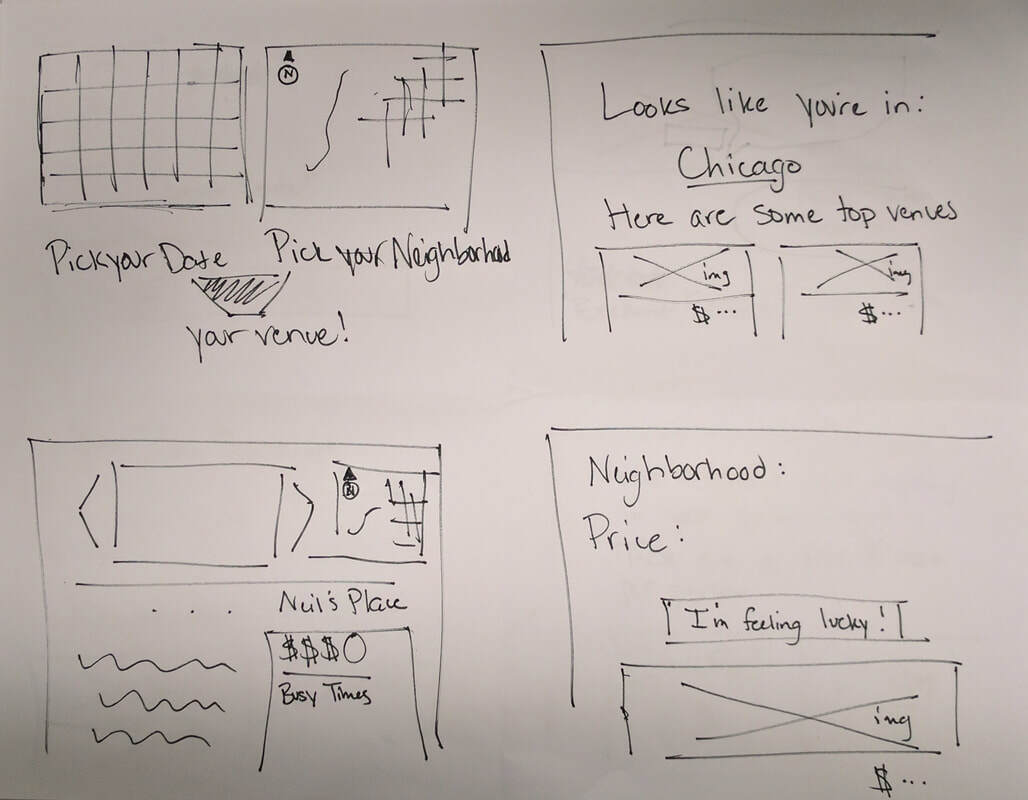 N
Pick your Date
Pick your Neighborhood
your venue!
Looks like you're in:
Chicago
Here are some top venues
img
img
$...
$...
N
. . .
Neil's Place
$$$O
Busy Times
Neighborhood:
Price:
I'm feeling lucky!
img
$...